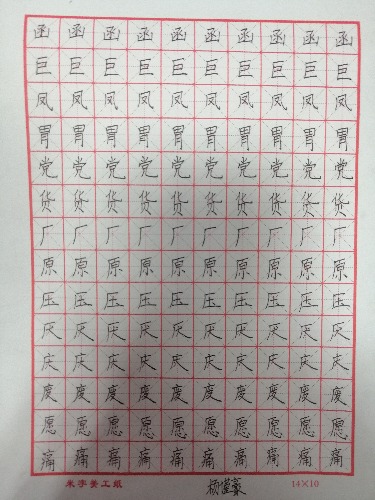 函 函 函 函 函 函 函 函 函 函
巨 巨 巨 巨 巨 巨 巨 巨 巨 巨
凤 凤 凤 凤 凤 凤 凤 凤 凤 凤
胃 胃 胃 胃 胃 胃 胃 胃 胃 胃
党 党 党 党 党 党 党 党 党 党
货 货 货 货 货 货 货 货 货 货
厂 厂 厂 厂 厂 厂 厂 厂 厂 厂
原 原 原 原 原 原 原 原 原 原
压 压 压 压 压 压 压 压 压 压
厌 厌 厌 厌 厌 厌 厌 厌 厌 厌
庆 庆 庆 庆 庆 庆 庆 庆 庆 庆
愿 愿 愿 愿 愿 愿 愿 愿 愿 愿
痛 痛 痛 痛 痛 痛 痛 痛 痛 痛
米字美工纸 杨 14×10